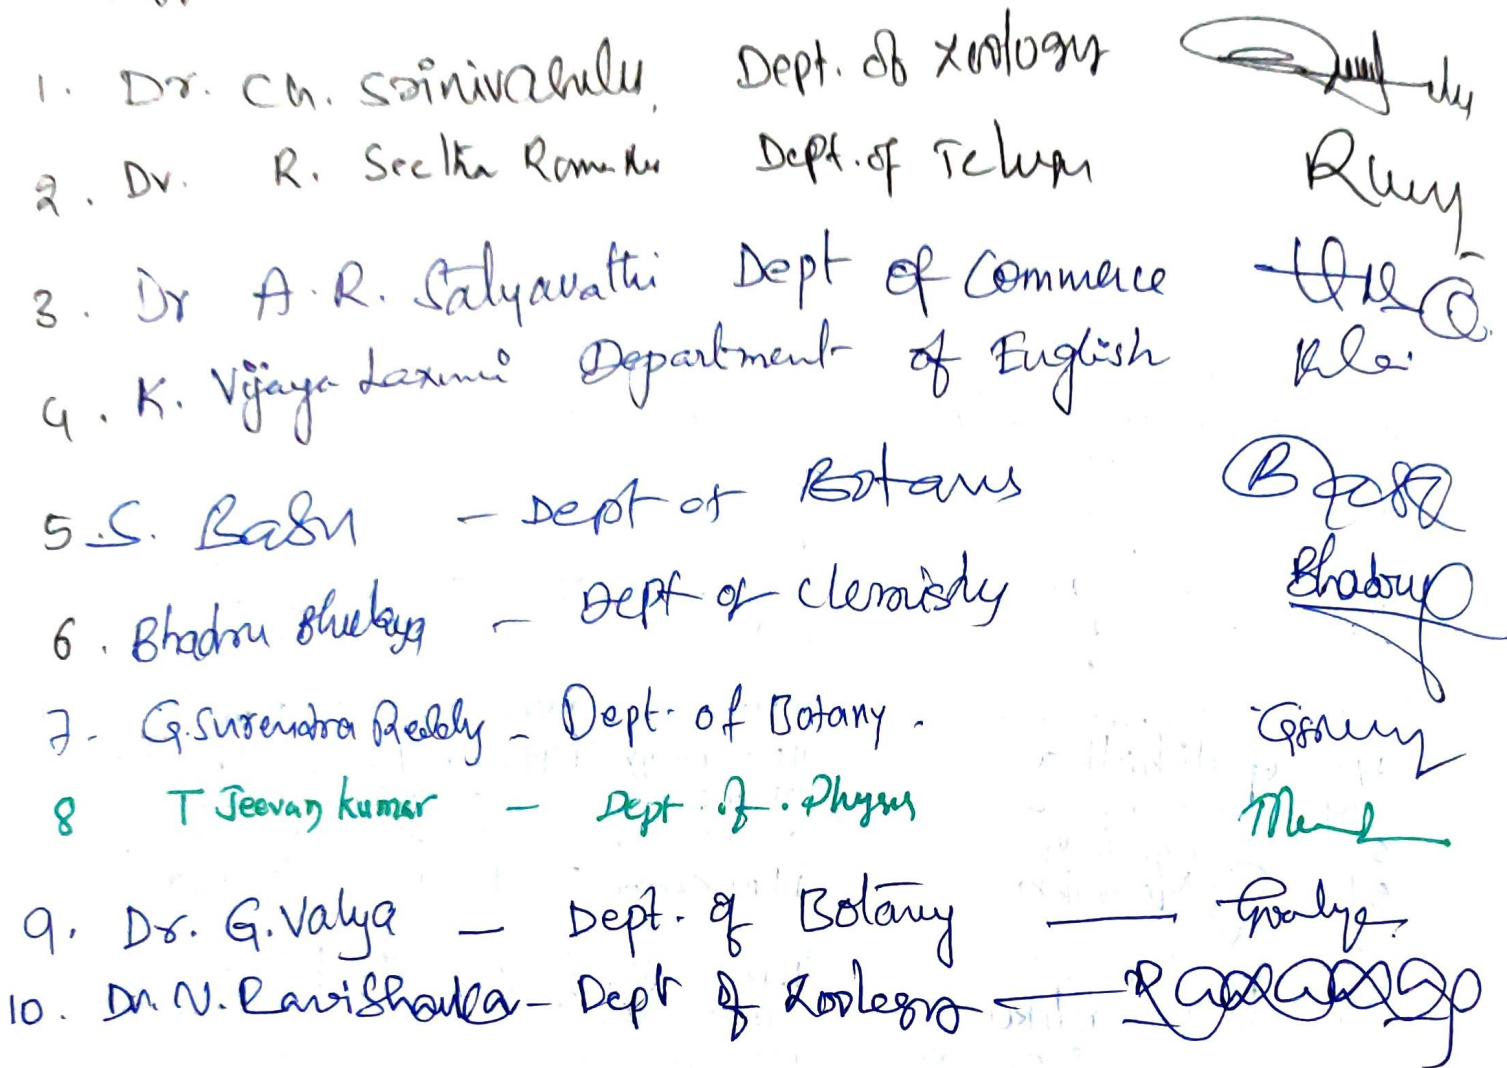 1. Dr. Ch. Srinivasulu, Dept. of Zoology
2. Dr. R. Seetha Ramulu Dept. of Telugu
3. Dr A. R. Satyavathi Dept of Commerce
4. K. Vijaya Laxmi Department of English
5. S. Babu - Dept of Botany
6. Bhadru Bhukya - Dept of Chemistry Bhadru
7. G. Surendra Reddy - Dept. of Botany.
8 T Jeevan kumar - Dept. of. Physics
9. Dr. G. Valya - Dept. of Botany — Gvalya
10. Dr. N. Ravishanka - Dept of Zoology —